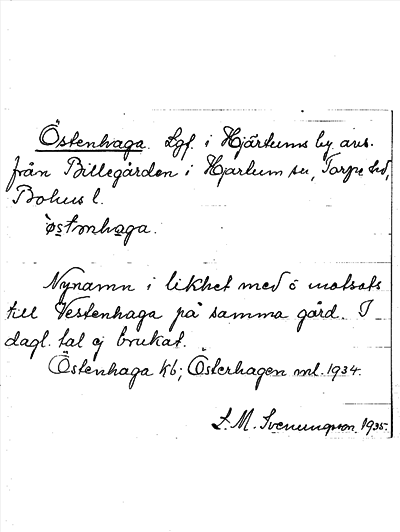 Östenhaga. Lgf. i Hjärtums by, avs.
från Billegården i Hjärtum sn, Torpe hd,
Bohus l.
østənhaga.
Nynamn i likhet med o motsats
till Vestenhaga på samma gård. I
dagl. tal ej brukat.
Östenhaga kb; Österhagen ml. 1934.
S. M. Svenungson. 1935.